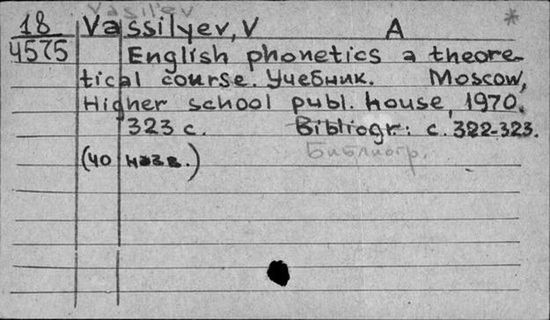 Vasilev
18 Vassilyev, V A *
4575 English phonetics a theore-
tical course. Учебник. Moscow,
Higher school publ. house, 1970.
323 с. Bibliogr: с. 322-323.
Библиогр.
(40 назв.)